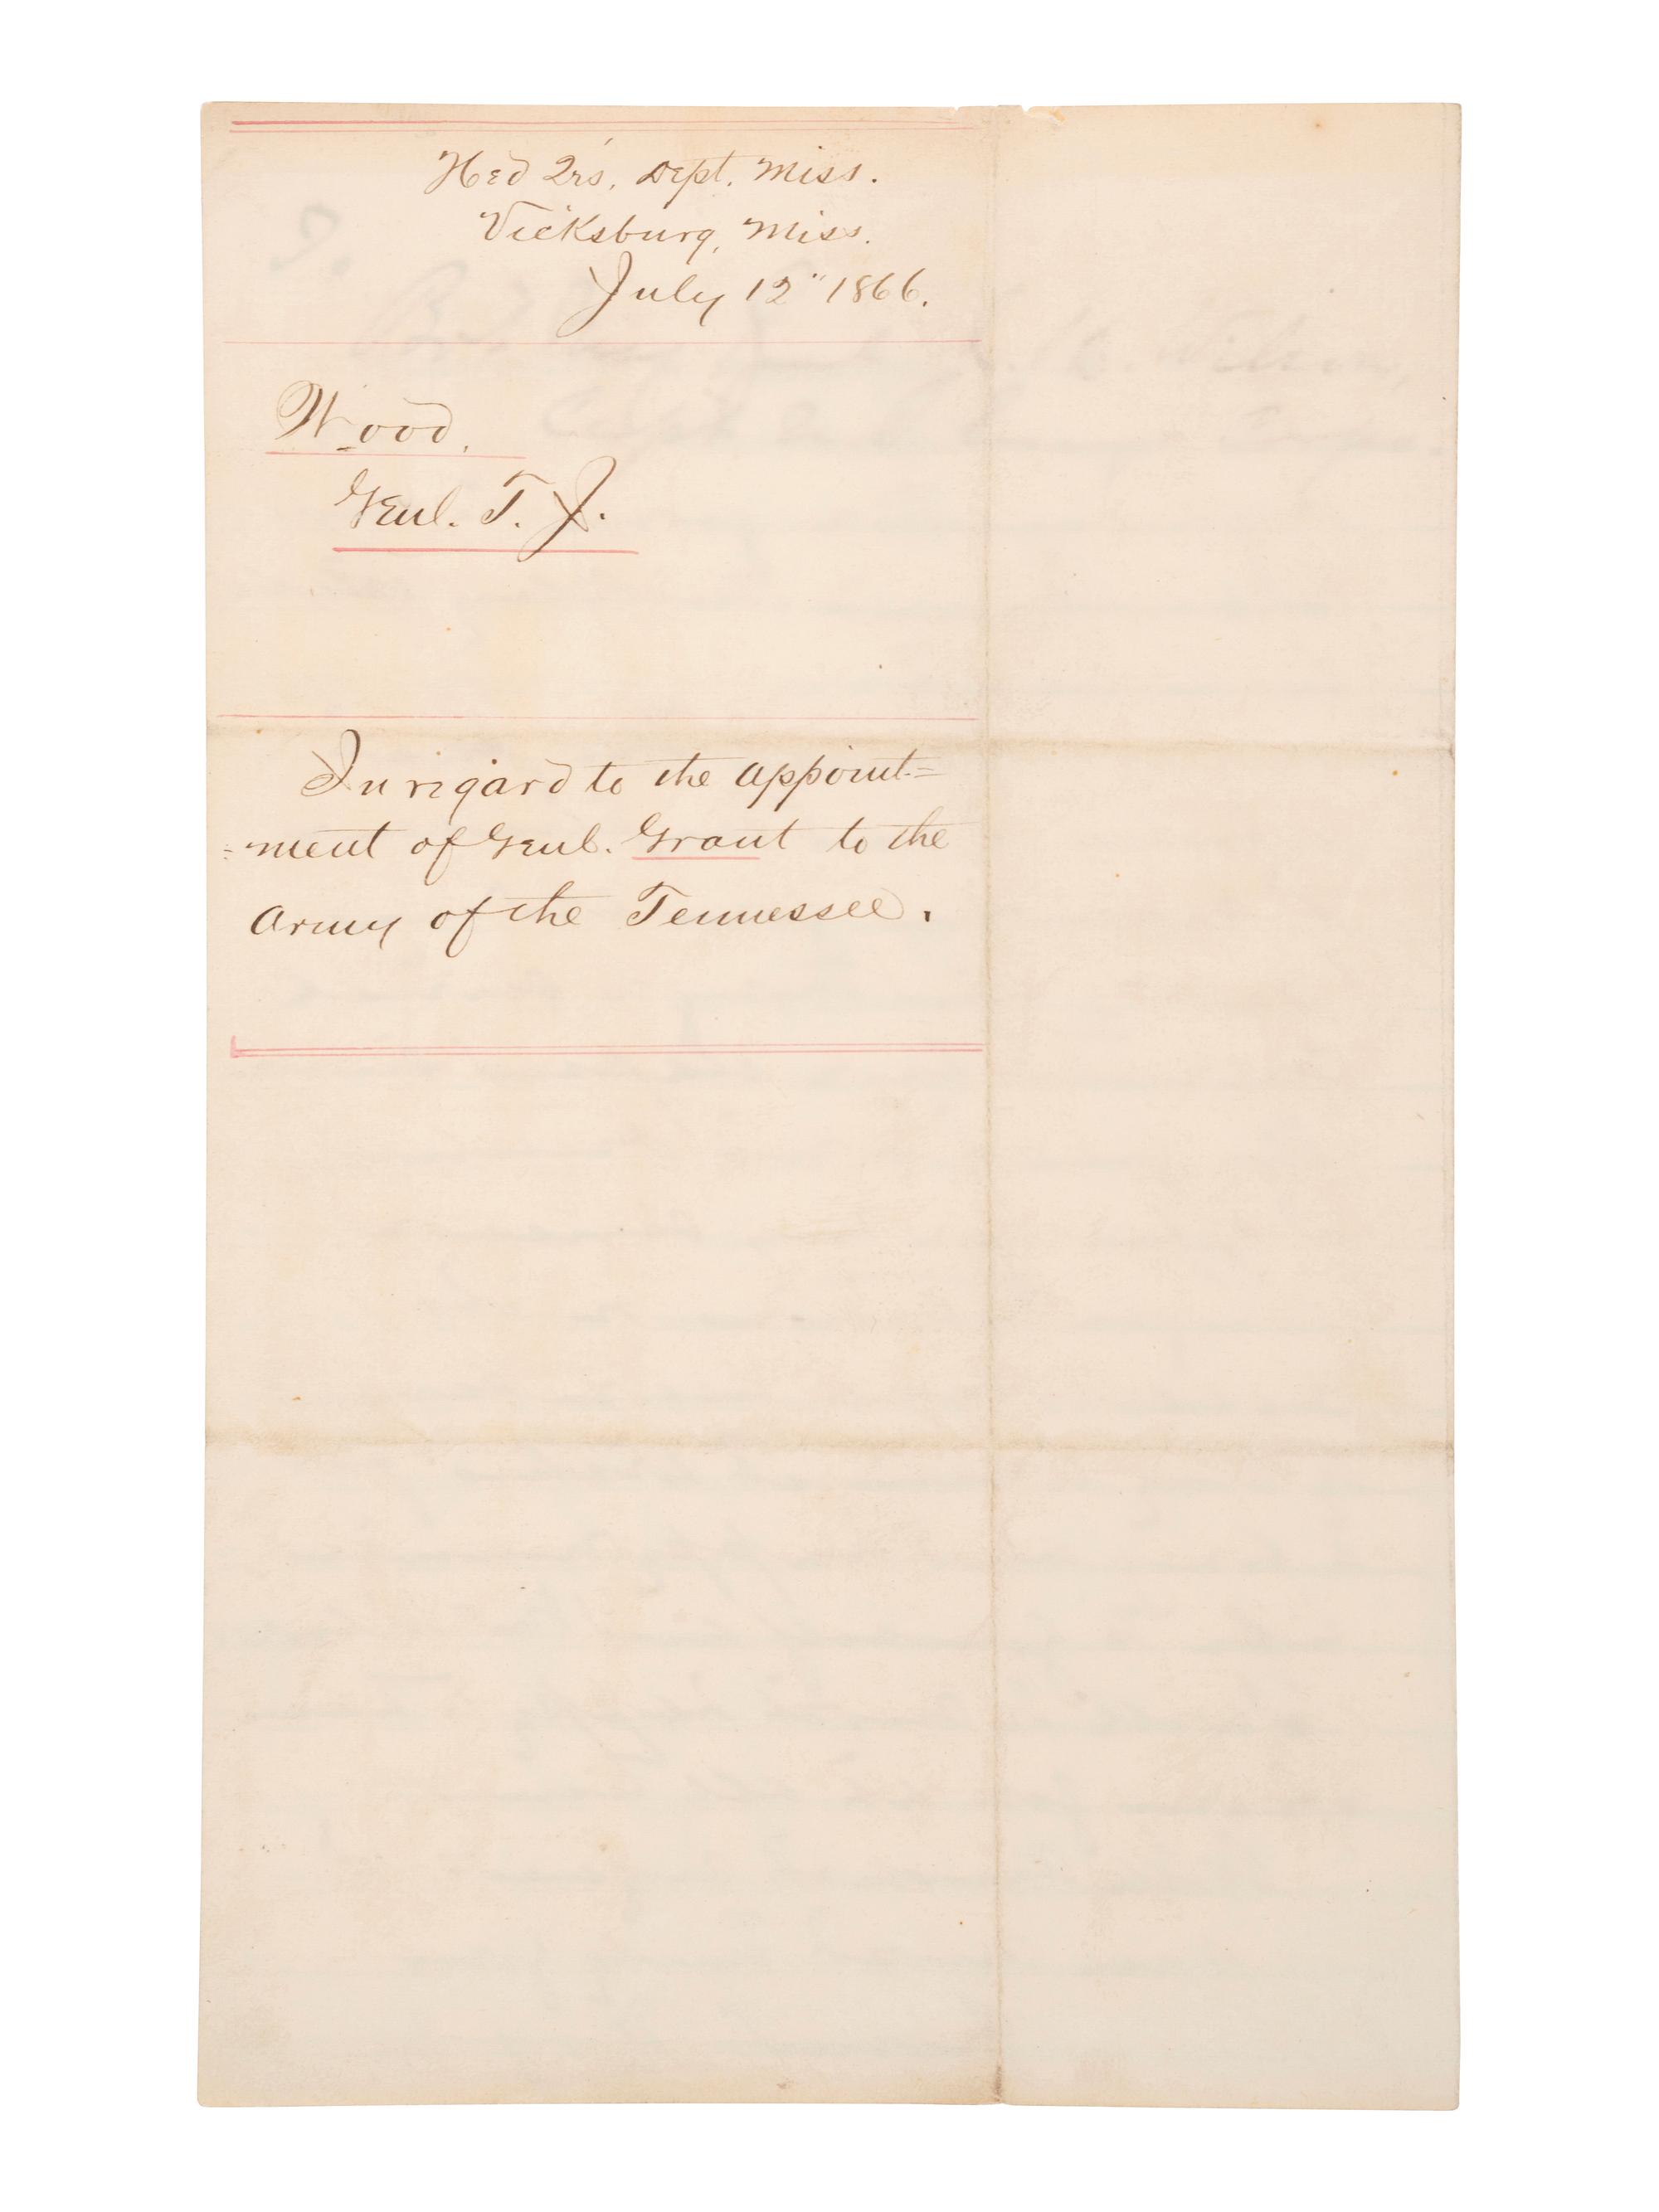 Hed Qrs, Dept. Miss.
Vicksburg, Miss.
July 12" 1866.
Wood,
Genl. T. J.
In regard to the appoint=
=ment of Genl. Grant to the
Army of the Tennessee.